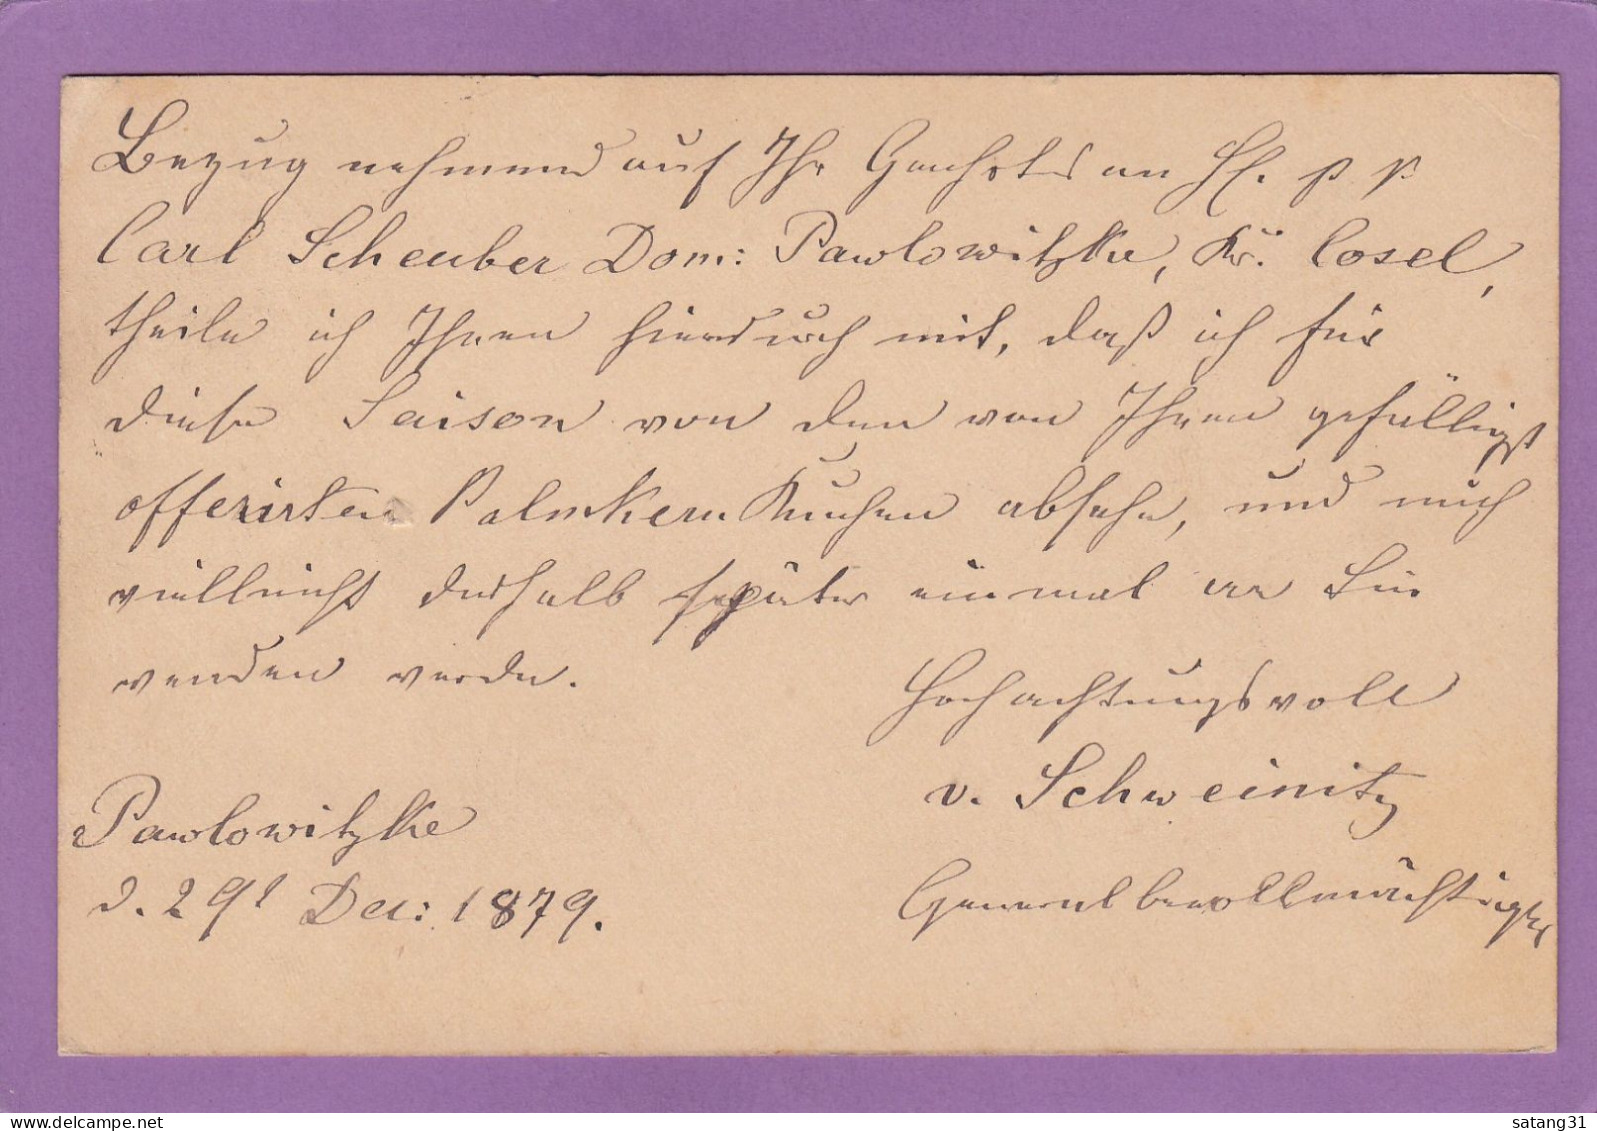 Bezug nehmend auf Ihr Geehrtes an H. p. p.
Carl Scheuber Dom: Pawlowitzke, Kr. Cosel,
theile ich Ihnen hierdurch mit, daß ich für
diese Saison von den von Ihnen gefälligst
offerirten Palmkern Kuchen absehe, und mich
vielleicht deshalb später einmal an Sie
wenden werde.
Hochachtungsvoll
v. Schweinitz
Generalbevollmächtigter
Pawlowitzke
d. 29t Dec: 1879.
satang31